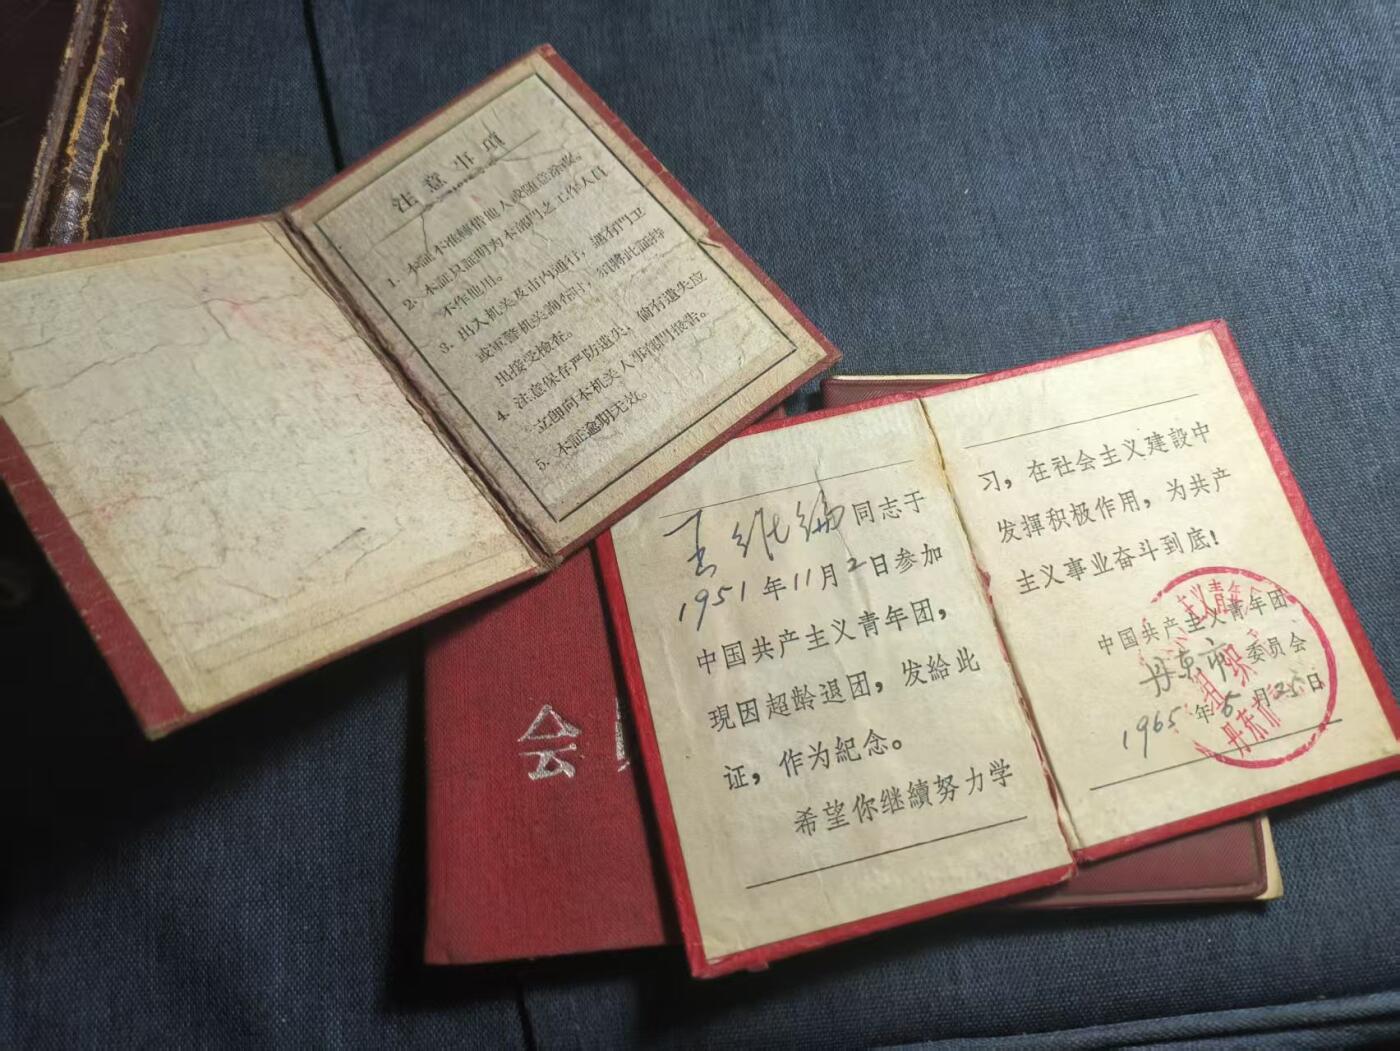 注意事項
1. 本証不准轉借他人或随意涂改。
2. 本証只証明为本部門之工作人員
不作他用。
3. 出入机关及市內通行，遇有門卫
或軍警机关詢查时，須將此証持
出接受檢查。
4. 注意保存严防遺失，倘有遺失应
立即向本机关人事部門报告。
5. 本証逾期无效。
会
王维编同志于
1951年11月2日参加
中国共产主义青年团，
現因超龄退团，发給此
证，作为紀念。
希望你继續努力学
习，在社会主义建設中
发揮积极作用，为共产
主义事业奋斗到底！
中国共产主义青年团
丹东市委员会
1965年5月25日